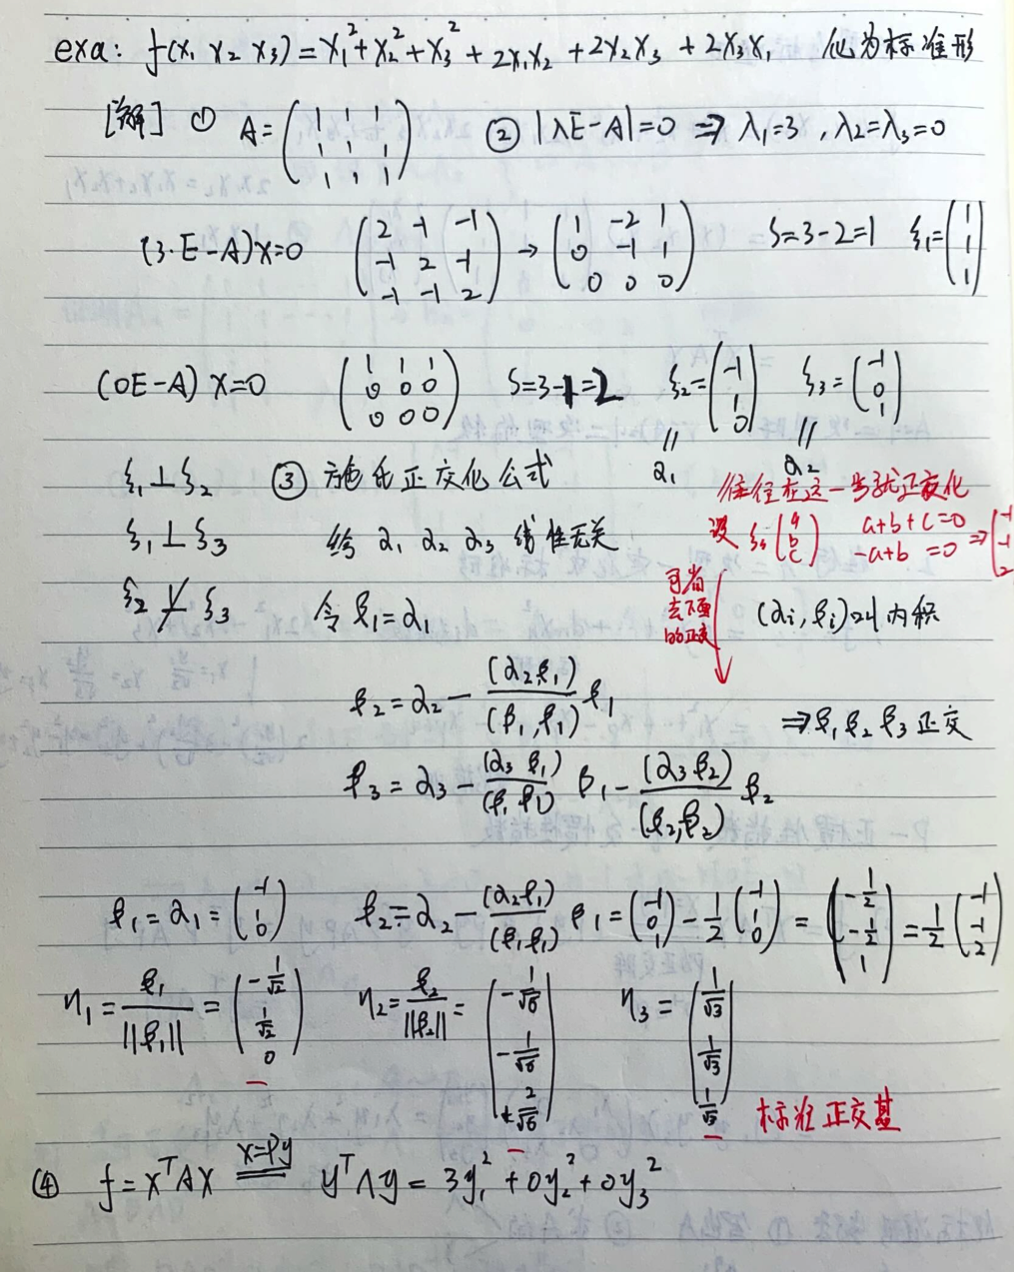 exa: f(x₁ x₂ x₃) = x₁² + x₂² + x₃² + 2x₁x₂ + 2x₂x₃ + 2x₃x₁ 化为标准形
[解] ① A = (1 1 1; 1 1 1; 1 1 1) ② |λE-A|=0 ⇒ λ₁=3, λ₂=λ₃=0
(3·E-A)x=0 (2 -1 -1; -1 2 -1; -1 -1 2) → (1 -2 1; 0 -1 1; 0 0 0) S=3-2=1 ξ₁=(1; 1; 1)
(0E-A)x=0 (1 1 1; 0 0 0; 0 0 0) S=3-1=2 ξ₂=(-1; 1; 0) ξ₃=(-1; 0; 1)
= α₁ = α₂
往往在这一步就正交化
ξ₁⊥ξ₂ ③ 施氏正交化公式
设 ξ₃(a; b; c) a+b+c=0 -a+b=0 ⇒ (-1; -1; 2)
ξ₁⊥ξ₃ 给 α₁ α₂ α₃ 线性无关
可省去下面的正交
ξ₂⊥̸ξ₃ 令 β₁=α₁ (αi, βi)叫内积
β₂ = α₂ - (α₂β₁)/(β₁,β₁) β₁ ⇒ β₁ β₂ β₃ 正交
β₃ = α₃ - (α₃ β₁)/(β₁ β₁) β₁ - (α₃β₂)/(β₂,β₂) β₂
β₁ = α₁ = (-1; 1; 0) β₂ = α₂ - (α₂β₁)/(β₁β₁) β₁ = (-1; 0; 1) - 1/2 (-1; 1; 0) = (-1/2; -1/2; 1) = 1/2 (-1; -1; 2)
η₁ = β₁/||β₁|| = (-1/√2; 1/√2; 0) η₂ = β₂/||β₂|| = (-1/√6; -1/√6; +2/√6) η₃ = (1/√3; 1/√3; 1/√3)
标准正交基
④ f = xᵀAx =(x=Py)= yᵀΛy = 3y₁² + 0y₂² + 0y₃²